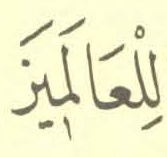 لِلْعَالَمِينَ